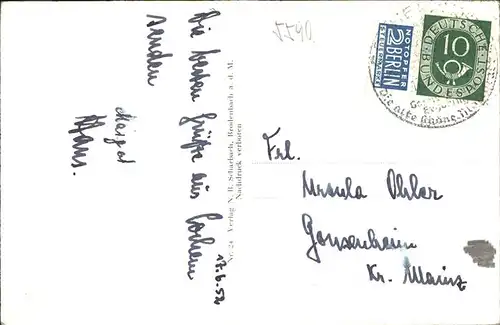 Die besten Grüße aus Cochem
senden
Margot
Hans.
17.6.52
Nr. 24 Verlag N. R. Scharbach, Brodenbach a. d. M.
Nachdruck verboten
5590
NOTOPFER
2 BERLIN
STEUERMARKE
DEUTSCHE
10
BUNDESPOST
Die alte
Frl.
Ursula Ohler
Gonsenheim
Kr. Mainz